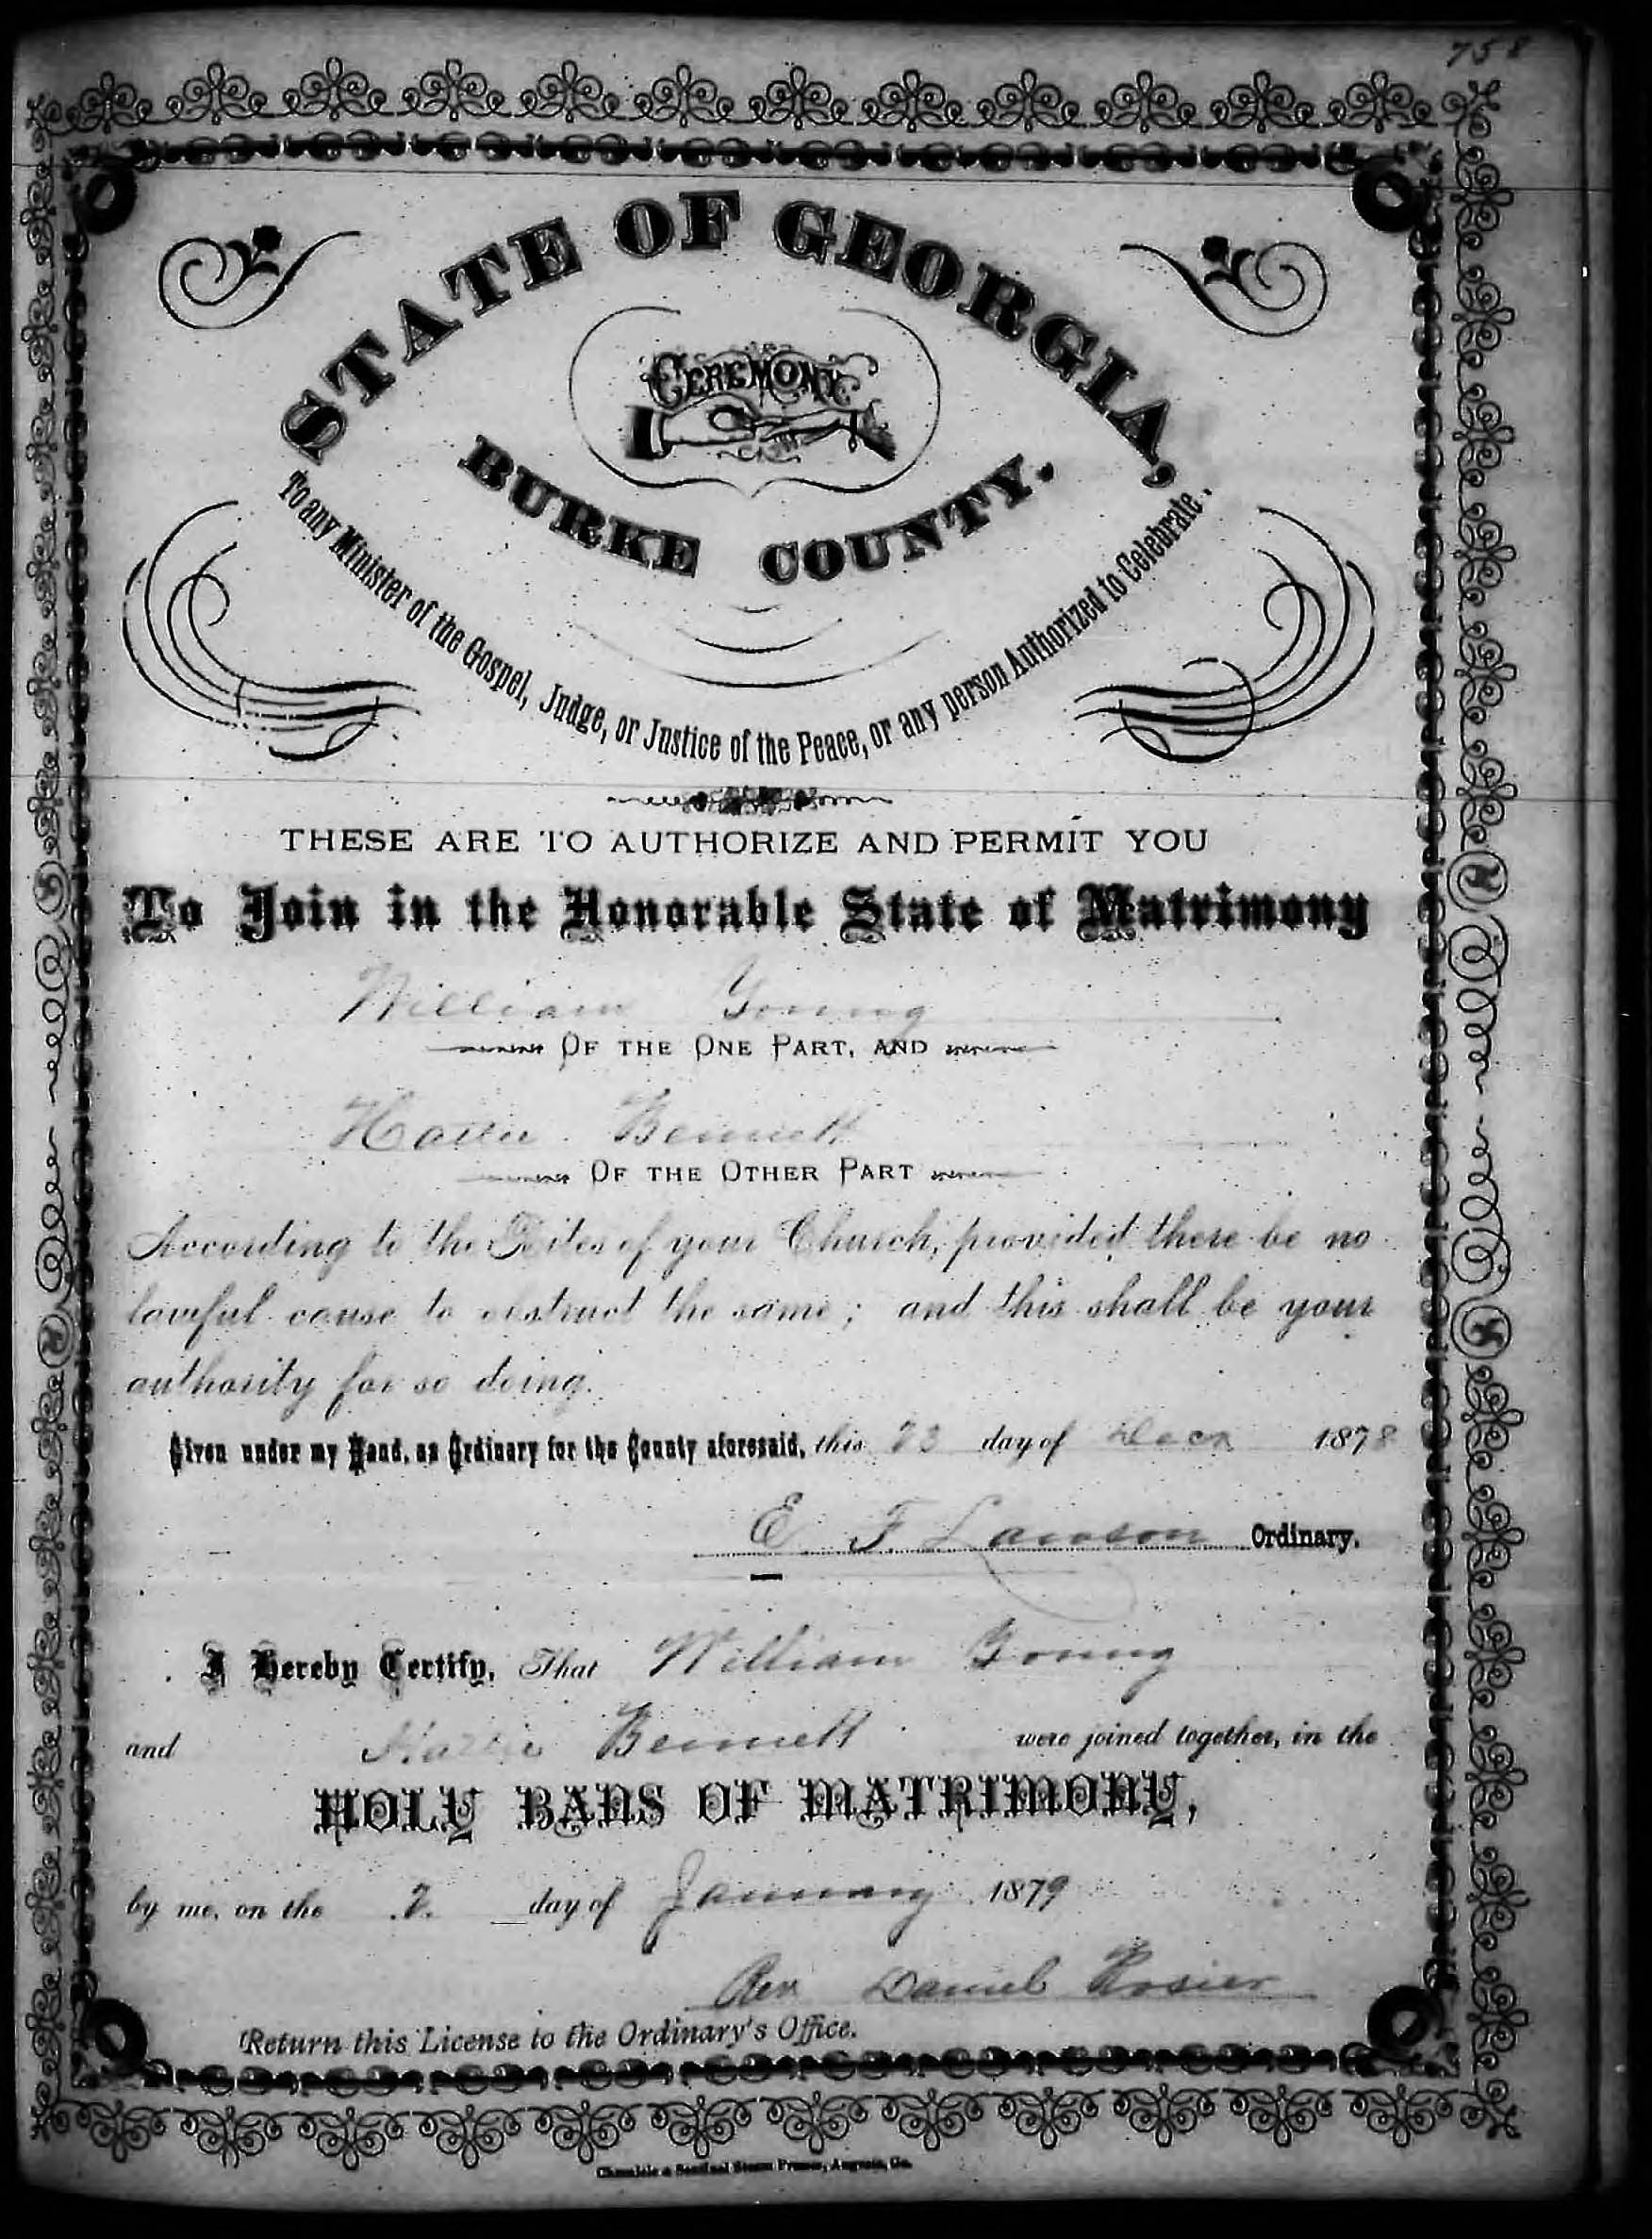 758
STATE OF GEORGIA,
CEREMONY
BURKE COUNTY.
To any Minister of the Gospel, Judge, or Justice of the Peace, or any person Authorized to Celebrate.
THESE ARE TO AUTHORIZE AND PERMIT YOU
To Join in the Honorable State of Matrimony
William Young
OF THE ONE PART, AND
Hattie Bennett
OF THE OTHER PART
According to the Rites of your Church, provided there be no
lawful cause to obstruct the same; and this shall be your
authority for so doing.
Given under my Hand, as Ordinary for the County aforesaid, this 23 day of Decr 1878
E. F. Lawson Ordinary.
I Hereby Certify, That William Young
and Hattie Bennett were joined together, in the
HOLY BANS OF MATRIMONY,
by me, on the 2. day of January 1879
Rev Daniel Rosier
Return this License to the Ordinary's Office.
Chronicle & Sentinel Steam Presses, Augusta, Ga.